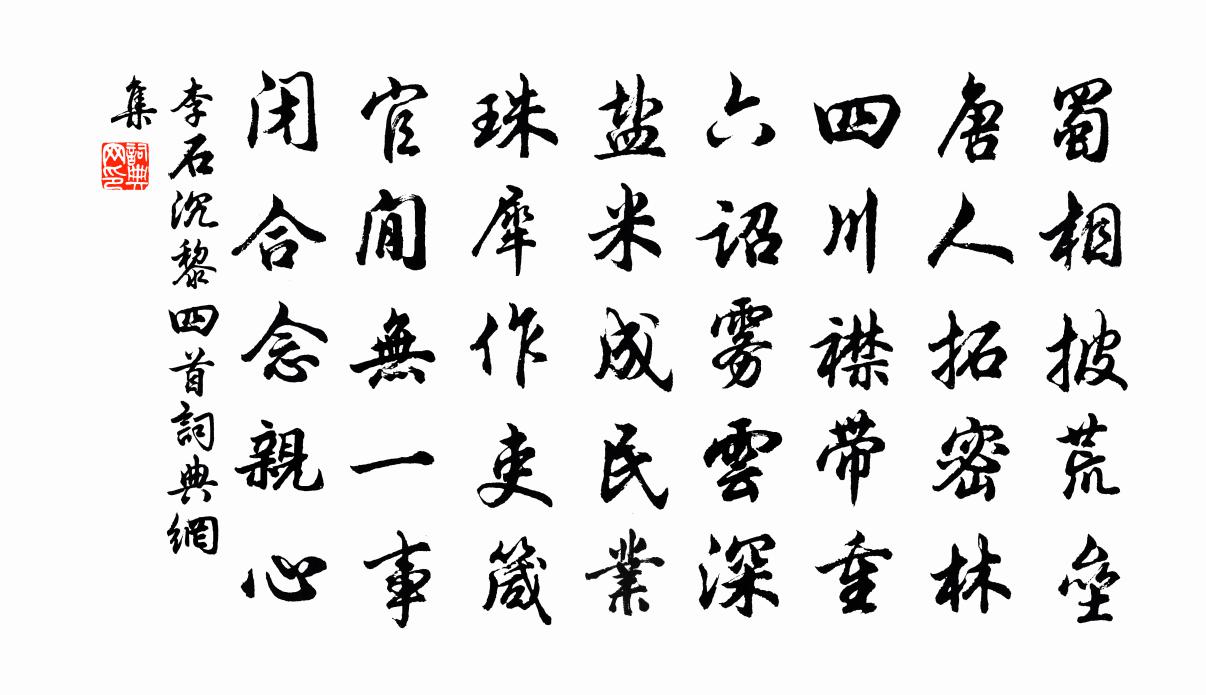 蜀相披荒壘
唐人拓密林
四川襟带重
六诏雾雲深
盐米成民業
珠犀作吏箴
官閒無一事
闭合念親心
李石沉黎四首詞典網
集
詞典网印